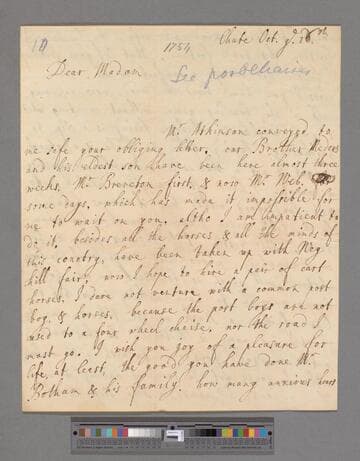 10
1754
Chute Oct. yͤ 16th
Dear Madam
Mr. Atkinson conveyed to
me safe your obliging letter. our Brother Medows
and his eldest son have been here almost three
weeks, Mr. Brereton first, & now Mr. Web.
some days, which has made it impossible for
me to wait on you, altho I am impatient to
do it, besides all the horses & all the minds of
this country, have been taken up with Wey
hill fair, now I hope to hire a pair of cart
horses. I dare not venture with a common post
boy, & horses, because the post boys are not
used to a four wheel chaise, nor the road I
must go. I wish you joy of a pleasure for
life, at least, the good you have done Mr.
Botham & his family. how many anxious hours